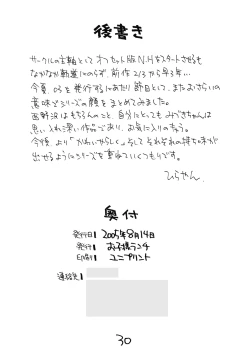 後書き
サークルの主軸としてオフセット版N.Hをスタートさせるも
なかなか軌道にのらず、前作2/3から早3年…
今夏、03を発行するにあたり節目として、またおさらいの
意味でシリーズの顔をまとめてみました。
西野沢はもちろんのこと、自分にとってもみづきちゃんは
思い入れ深い作品であり、お気に入りのキャラ。
今後、より「かわいがらしく」、そしてそれぞれの持ち味が
出せるようにシリーズを重ねていくつもりです。
ひらやん
奥付
発行日 2005年8月14日
発行 お子様ランチ
印刷 ユニプリント
連絡先
30